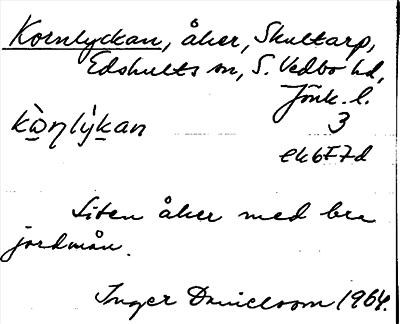 Kornlyckan, åker, Skultarp,
Edshults sn, S. Vedbo hd,
Jönk. l.
3
kò̱ṉlý̱kan
ek6F7d
Liten åker med bra
jordmån.
Inger Danielsson 1964.